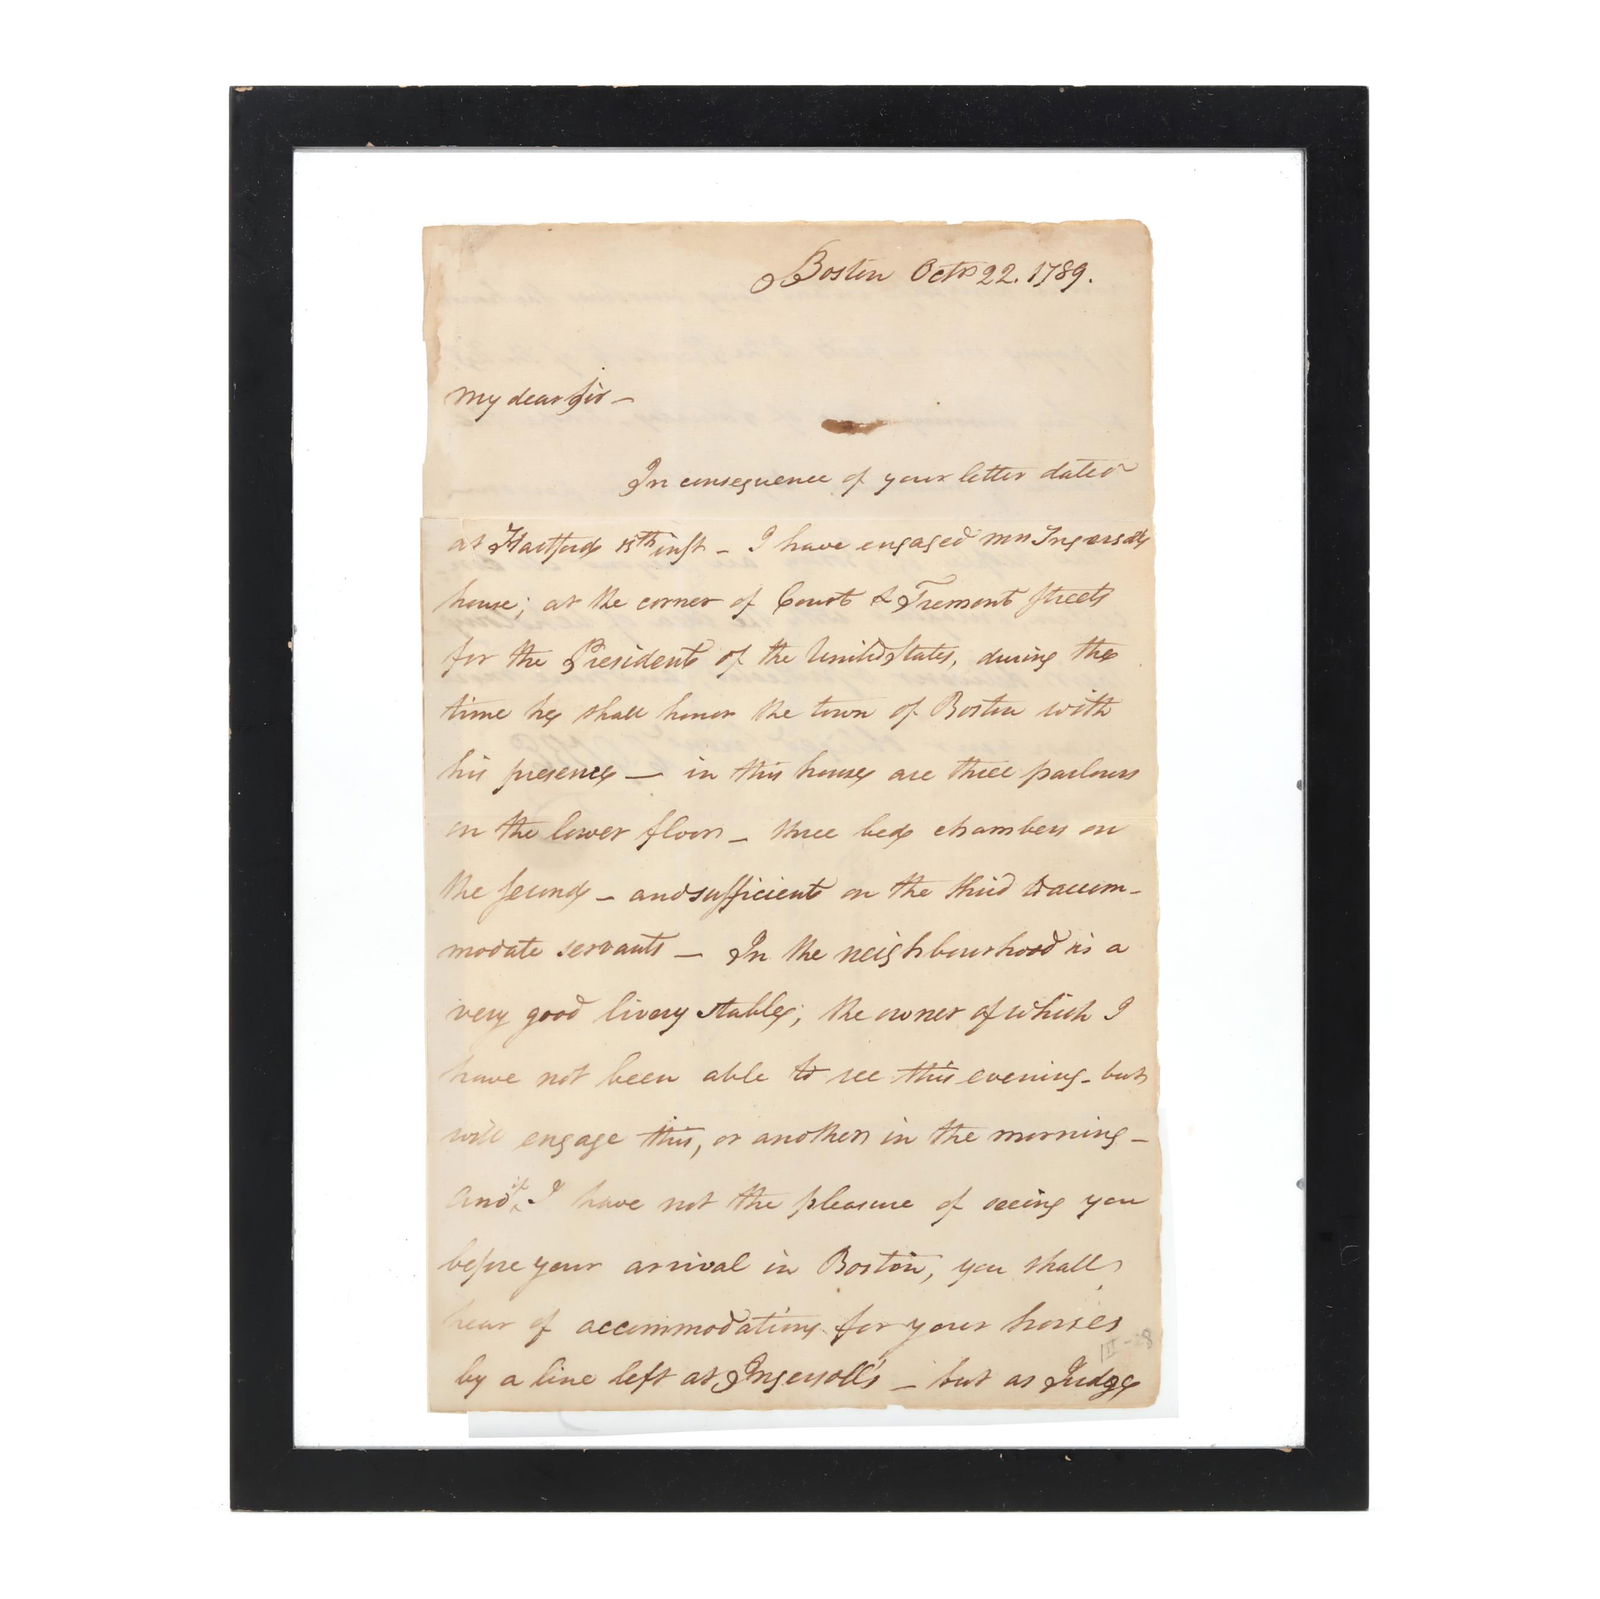 Boston Octr 22. 1789.
My dear Sir —
In consequence of your letter dated
at Hartford inst — I have engaged Mrs Ingersolls
house; at the corner of Court & Tremont Streets
for the President of the United States, during the
time he shall honor the town of Boston with
his presence — in this house are three parlours
on the lower floor — three bed chambers on
the second — and sufficient on the third to accom-
modate servants — In the neighbourhood is a
very good livery stable; the owner of which I
have not been able to see this evening - but
will engage this, or another in the morning —
And if I have not the pleasure of seeing you
before your arrival in Boston, you shall
hear of accommodations for your horses
by a line left at Ingersoll's — but as Judge
III-28